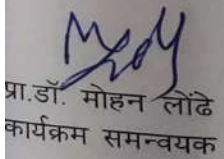 प्रा.डॉ. मोहन लोंढे
कार्यक्रम समन्वयक